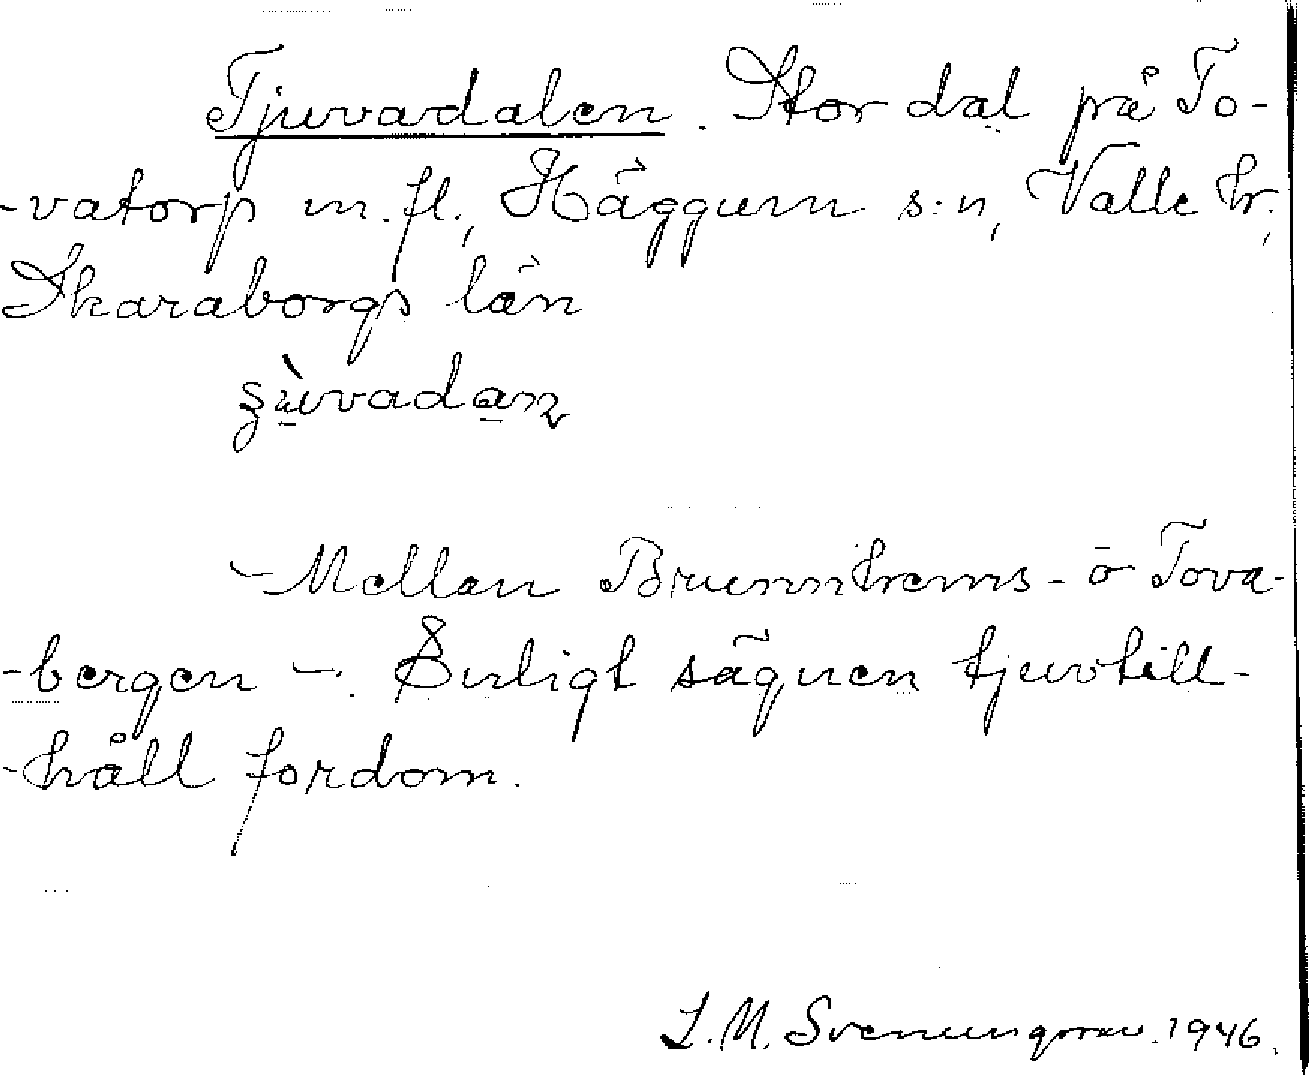 Tjuvadalen. Stor dal på To-
-vatorp m.fl., Häggum s:n, Valle hr.,
Skaraborgs län
- Mellan Brunnhems- o Tova-
-bergen -. Enligt sägnen tjuvtill-
-håll fordom.
S. M. Svenungsson. 1946.